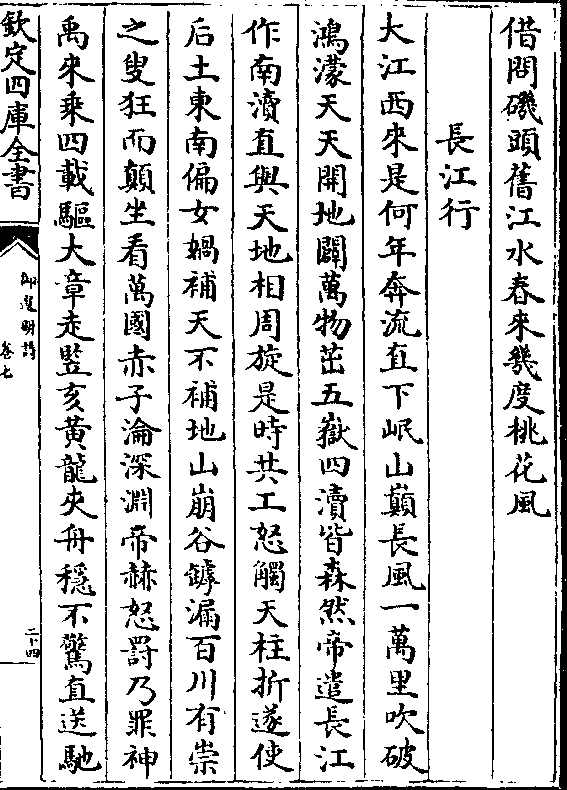 借問磯頭舊江水春來幾度桃花風
長江行
大江西來是何年奔流直下岷山巔長風一萬里吹破
鴻濛天天開地闢萬物茁五嶽四瀆皆森然帝遣長江
作南瀆直與天地相周旋是時共工怒觸天柱折遂使
后土東南偏女媧補天不補地山崩谷罅漏百川有崇
之叟狂而顛坐看萬國赤子淪深淵帝赫怒罰乃罪神
禹來乘四載驅大章走竪亥黃龍夾舟穩不驚直送馳
欽定四庫全書
御選明詩
卷七
二十四